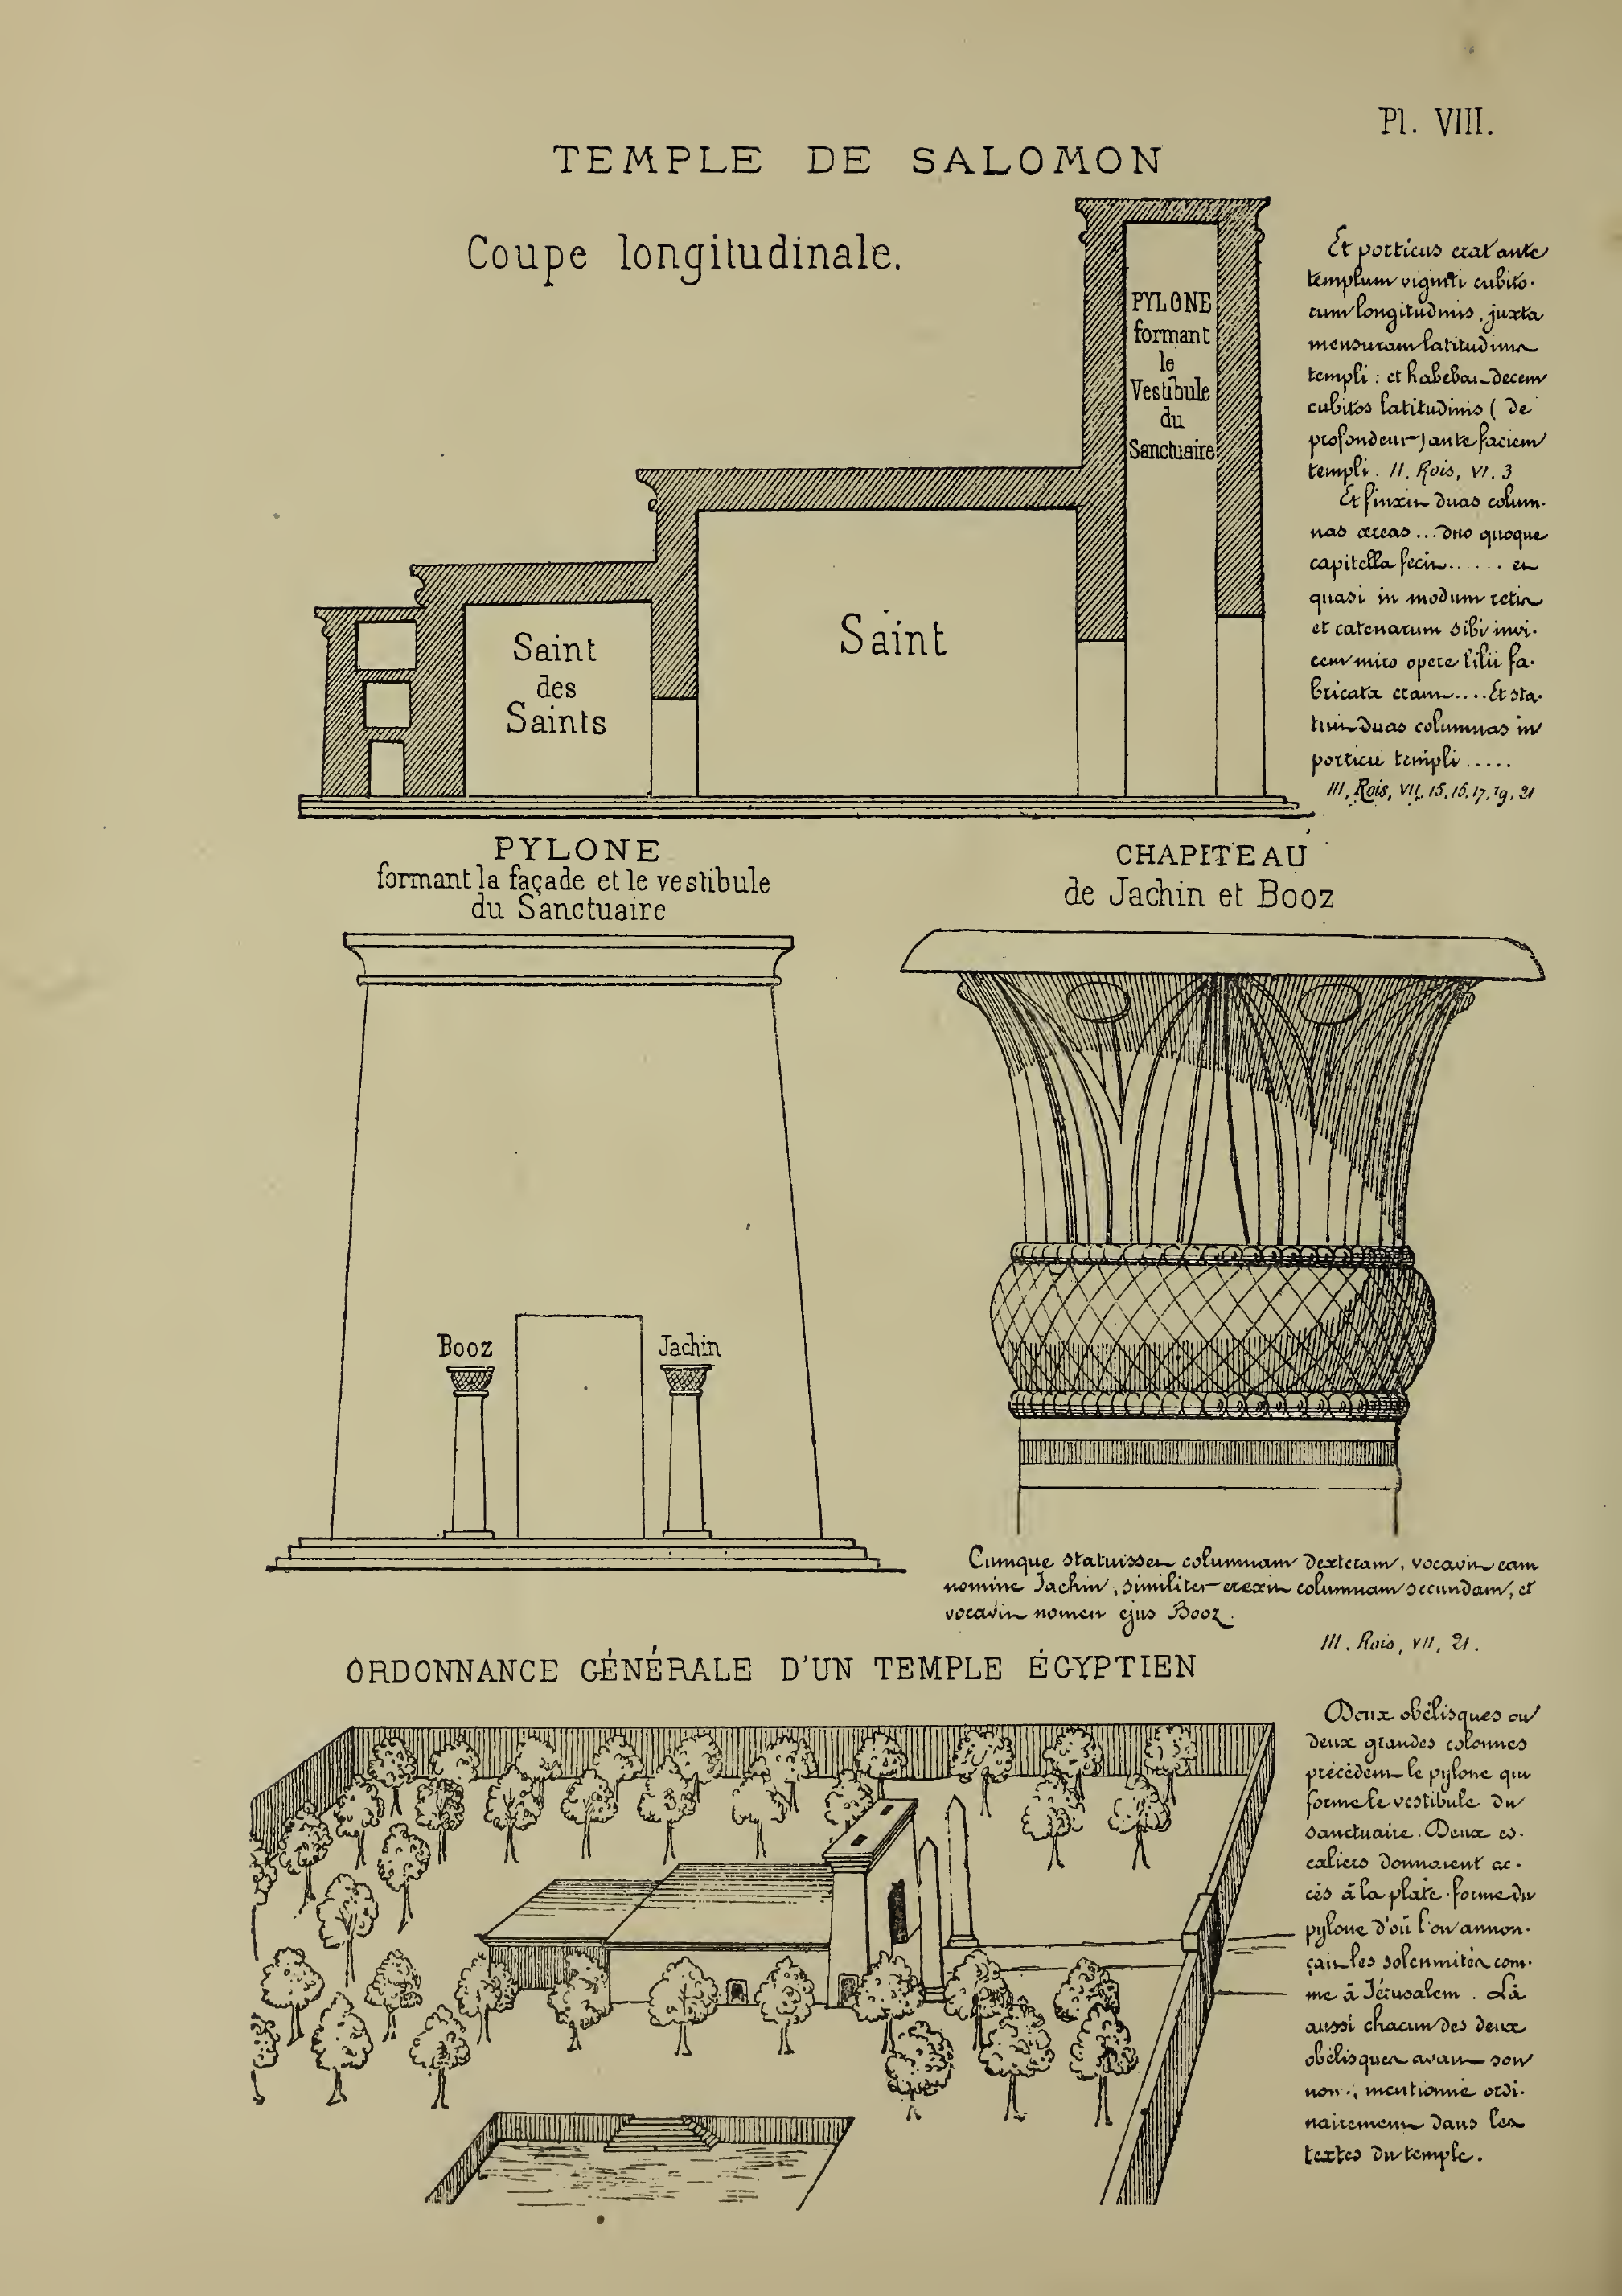 Pl. VIII.
TEMPLE DE SALOMON
Coupe longitudinale.
PYLONE
formant
le
Vestibule
du
Sanctuaire
Saint
Saint
des
Saints
Et porticus erat ante
templum viginti cubito-
rum longitudinis, juxta
mensuram latitudinis
templi : et habebat decem
cubitos latitudinis ( de
profondeur ) ante faciem
templi. II. Rois, VI. 3
Et finxit duas colum-
nas æreas ... duo quoque
capitella fecit ...... et
quasi in modum retis
et catenarum sibi invi-
cem miro opere
bricata erant .... Et sta-
tuit duas columnas in
porticu templi .....
III, Rois, VII, 15, 16, 17, 19, 21
PYLONE
formant la façade et le vestibule
du Sanctuaire
CHAPITEAU
de Jachin et Booz
Booz
Jachin
Cumque statuisset columnam dexteram, vocavit eam
nomine Jachin, similiter erexit columnam secundam, et
vocavit nomen ejus Booz.
III. Rois, VII, 21.
ORDONNANCE GÉNÉRALE D'UN TEMPLE ÉGYPTIEN
Deux obélisques ou
deux grandes colonnes
précèdent le pylone qui
forme le vestibule du
sanctuaire. Deux es-
caliers donnaient ac-
cès à la plate-forme du
pylone d'où l'on annon-
çait les solennités com-
me à Jérusalem. Là
aussi chacun des deux
obélisques avait son
nom, mentionné ordi-
nairement dans les
textes du temple.